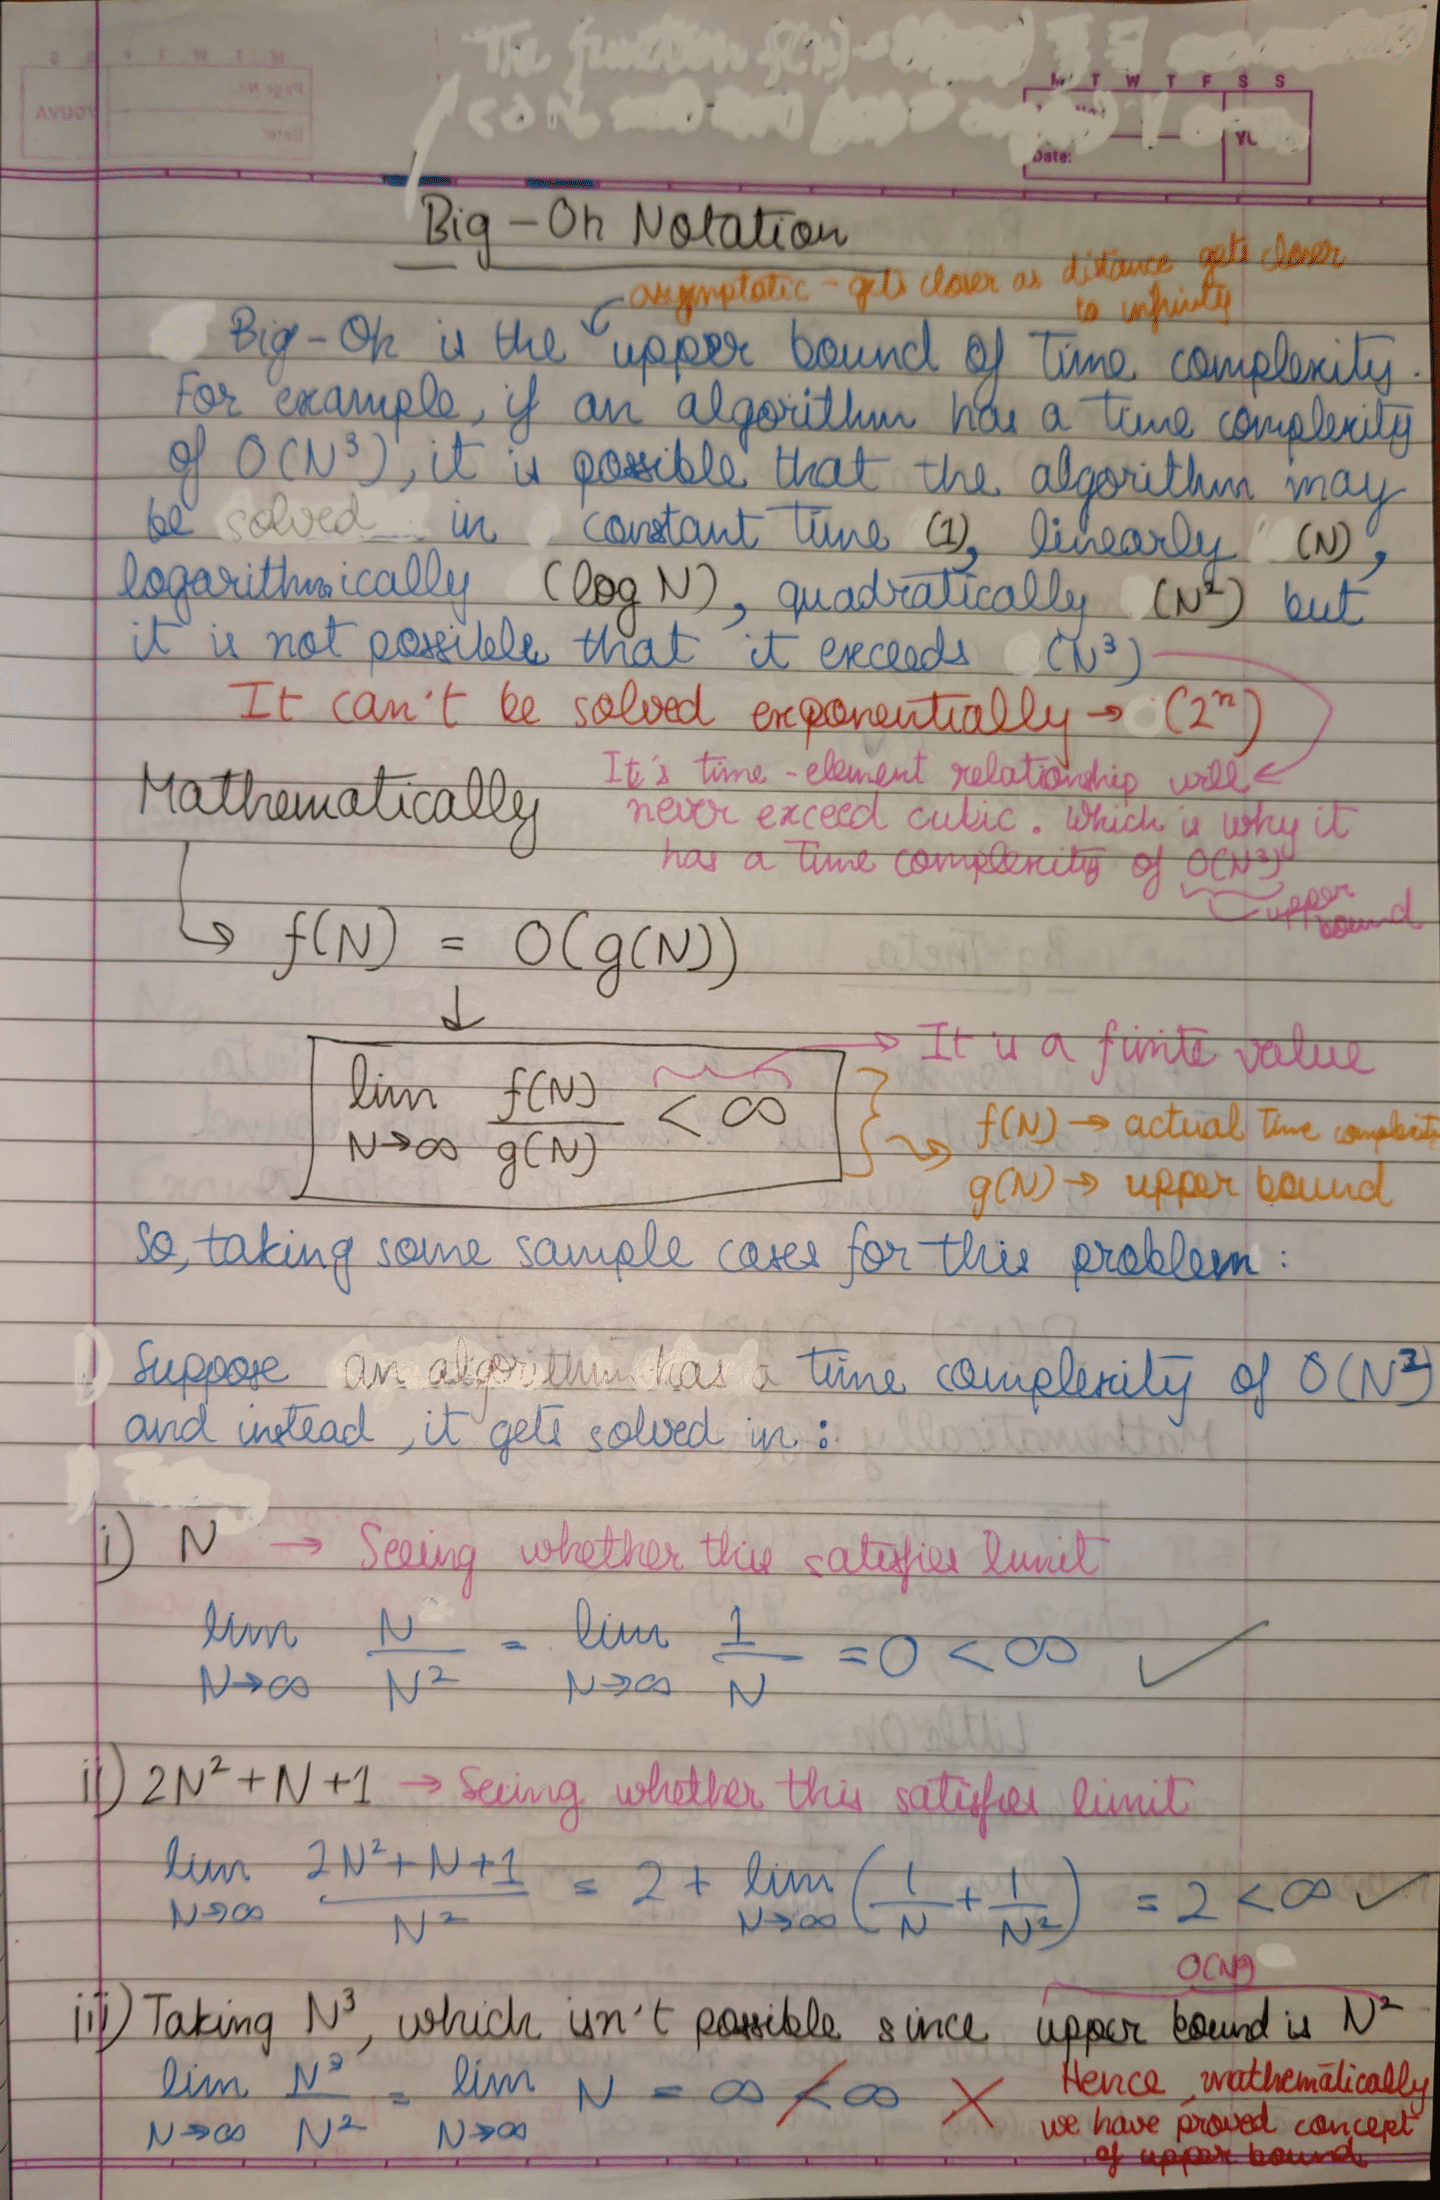 The function f(N) -
M T W T F S S
Date:
Big-Oh Notation
asymptotic - gets closer as distance gets closer
to infinity
Big-Oh is the upper bound of time complexity.
For example, if an algorithm has a time complexity
of O(N³), it is possible that the algorithm may
be solved in constant time (1), linearly (N),
logarithmically (log N), quadratically (N²) but
it is not possible that it exceeds (N³)
It can't be solved exponentially → (2ⁿ)
Mathematically
It's time-element relationship will
never exceed cubic. Which is why it
has a time complexity of O(N³)
upper
bound
f(N) = O(g(N))
↓
It is a finite value
lim f(N)/g(N) < ∞
N→∞
f(N) → actual time complexity
g(N) → upper bound
So, taking some sample cases for this problem:
Suppose an algorithm has a time complexity of O(N²)
and instead, it gets solved in:
i) N → Seeing whether this satisfies limit
lim N/N² = lim 1/N = 0 < ∞ ✓
N→∞ N→∞
ii) 2N²+N+1 → Seeing whether this satisfies limit
lim (2N²+N+1)/N² = 2 + lim (1/N + 1/N²) = 2 < ∞ ✓
N→∞ N→∞
O(N²)
iii) Taking N³, which isn't possible since upper bound is N²
lim N³/N² = lim N = ∞ ≮ ∞ ✗
N→∞ N→∞
Hence, mathematically
we have proved concept
of upper bound